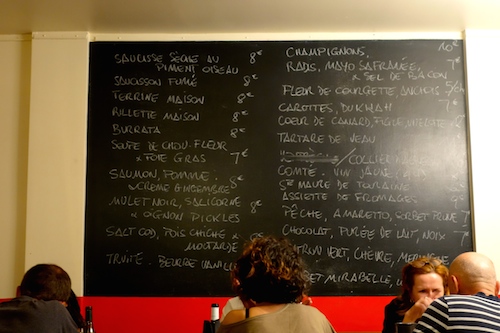 SAUCISSE SÈCHE AU
PIMENT OISEAU 8€
SAUCISSON FUMÉ 8€
TERRINE MAISON 8€
RILLETTE MAISON 8€
BURRATA 8€
SOUPE DE CHOU-FLEUR
x FOIE GRAS 7€
SAUMON, POMME
CONCOMBRE 8€
MULET NOIR, SALICORNE
x OIGNON PICKLES 9€
SALT COD, POIS CHICHE x
MOUTARDE
TRUITE, BEURRE VANILLE
CHAMPIGNONS, 10€
RADIS, MAYO SAFRANÉE, 7€
x SEL DE BACON
FLEUR DE COURGETTE ANCHOIS
CAROTTES, DUKKAH 7€
COEUR DE CANARD, FIGUE,
TARTARE DE VEAU
COLLIER
COMTÉ, VIN JAUNE
STE MAURE DE TOURAINE
ASSIETTE DE FROMAGES
PÊCHE, AMARETTO, SORBET PRUNE 7
CHOCOLAT, PURÉE DE LAIT, NOIX 7
CITRON VERT, CHÈVRE, MERINGUE
MIRABELLE,